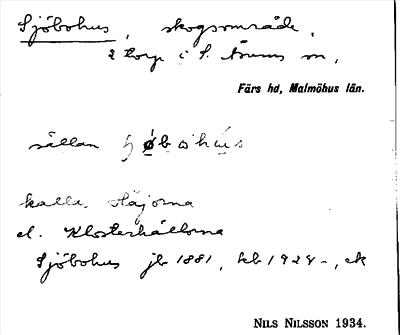 Sjöbohus, skogsområde,
2 torp i S. Åsums sn,
Färs hd, Malmöhus län.
sällan
kalla Höjorna
el. Klosterhällorna
Sjöbohus jb 1881, kb 1924-, ek
NILS NILSSON 1934.